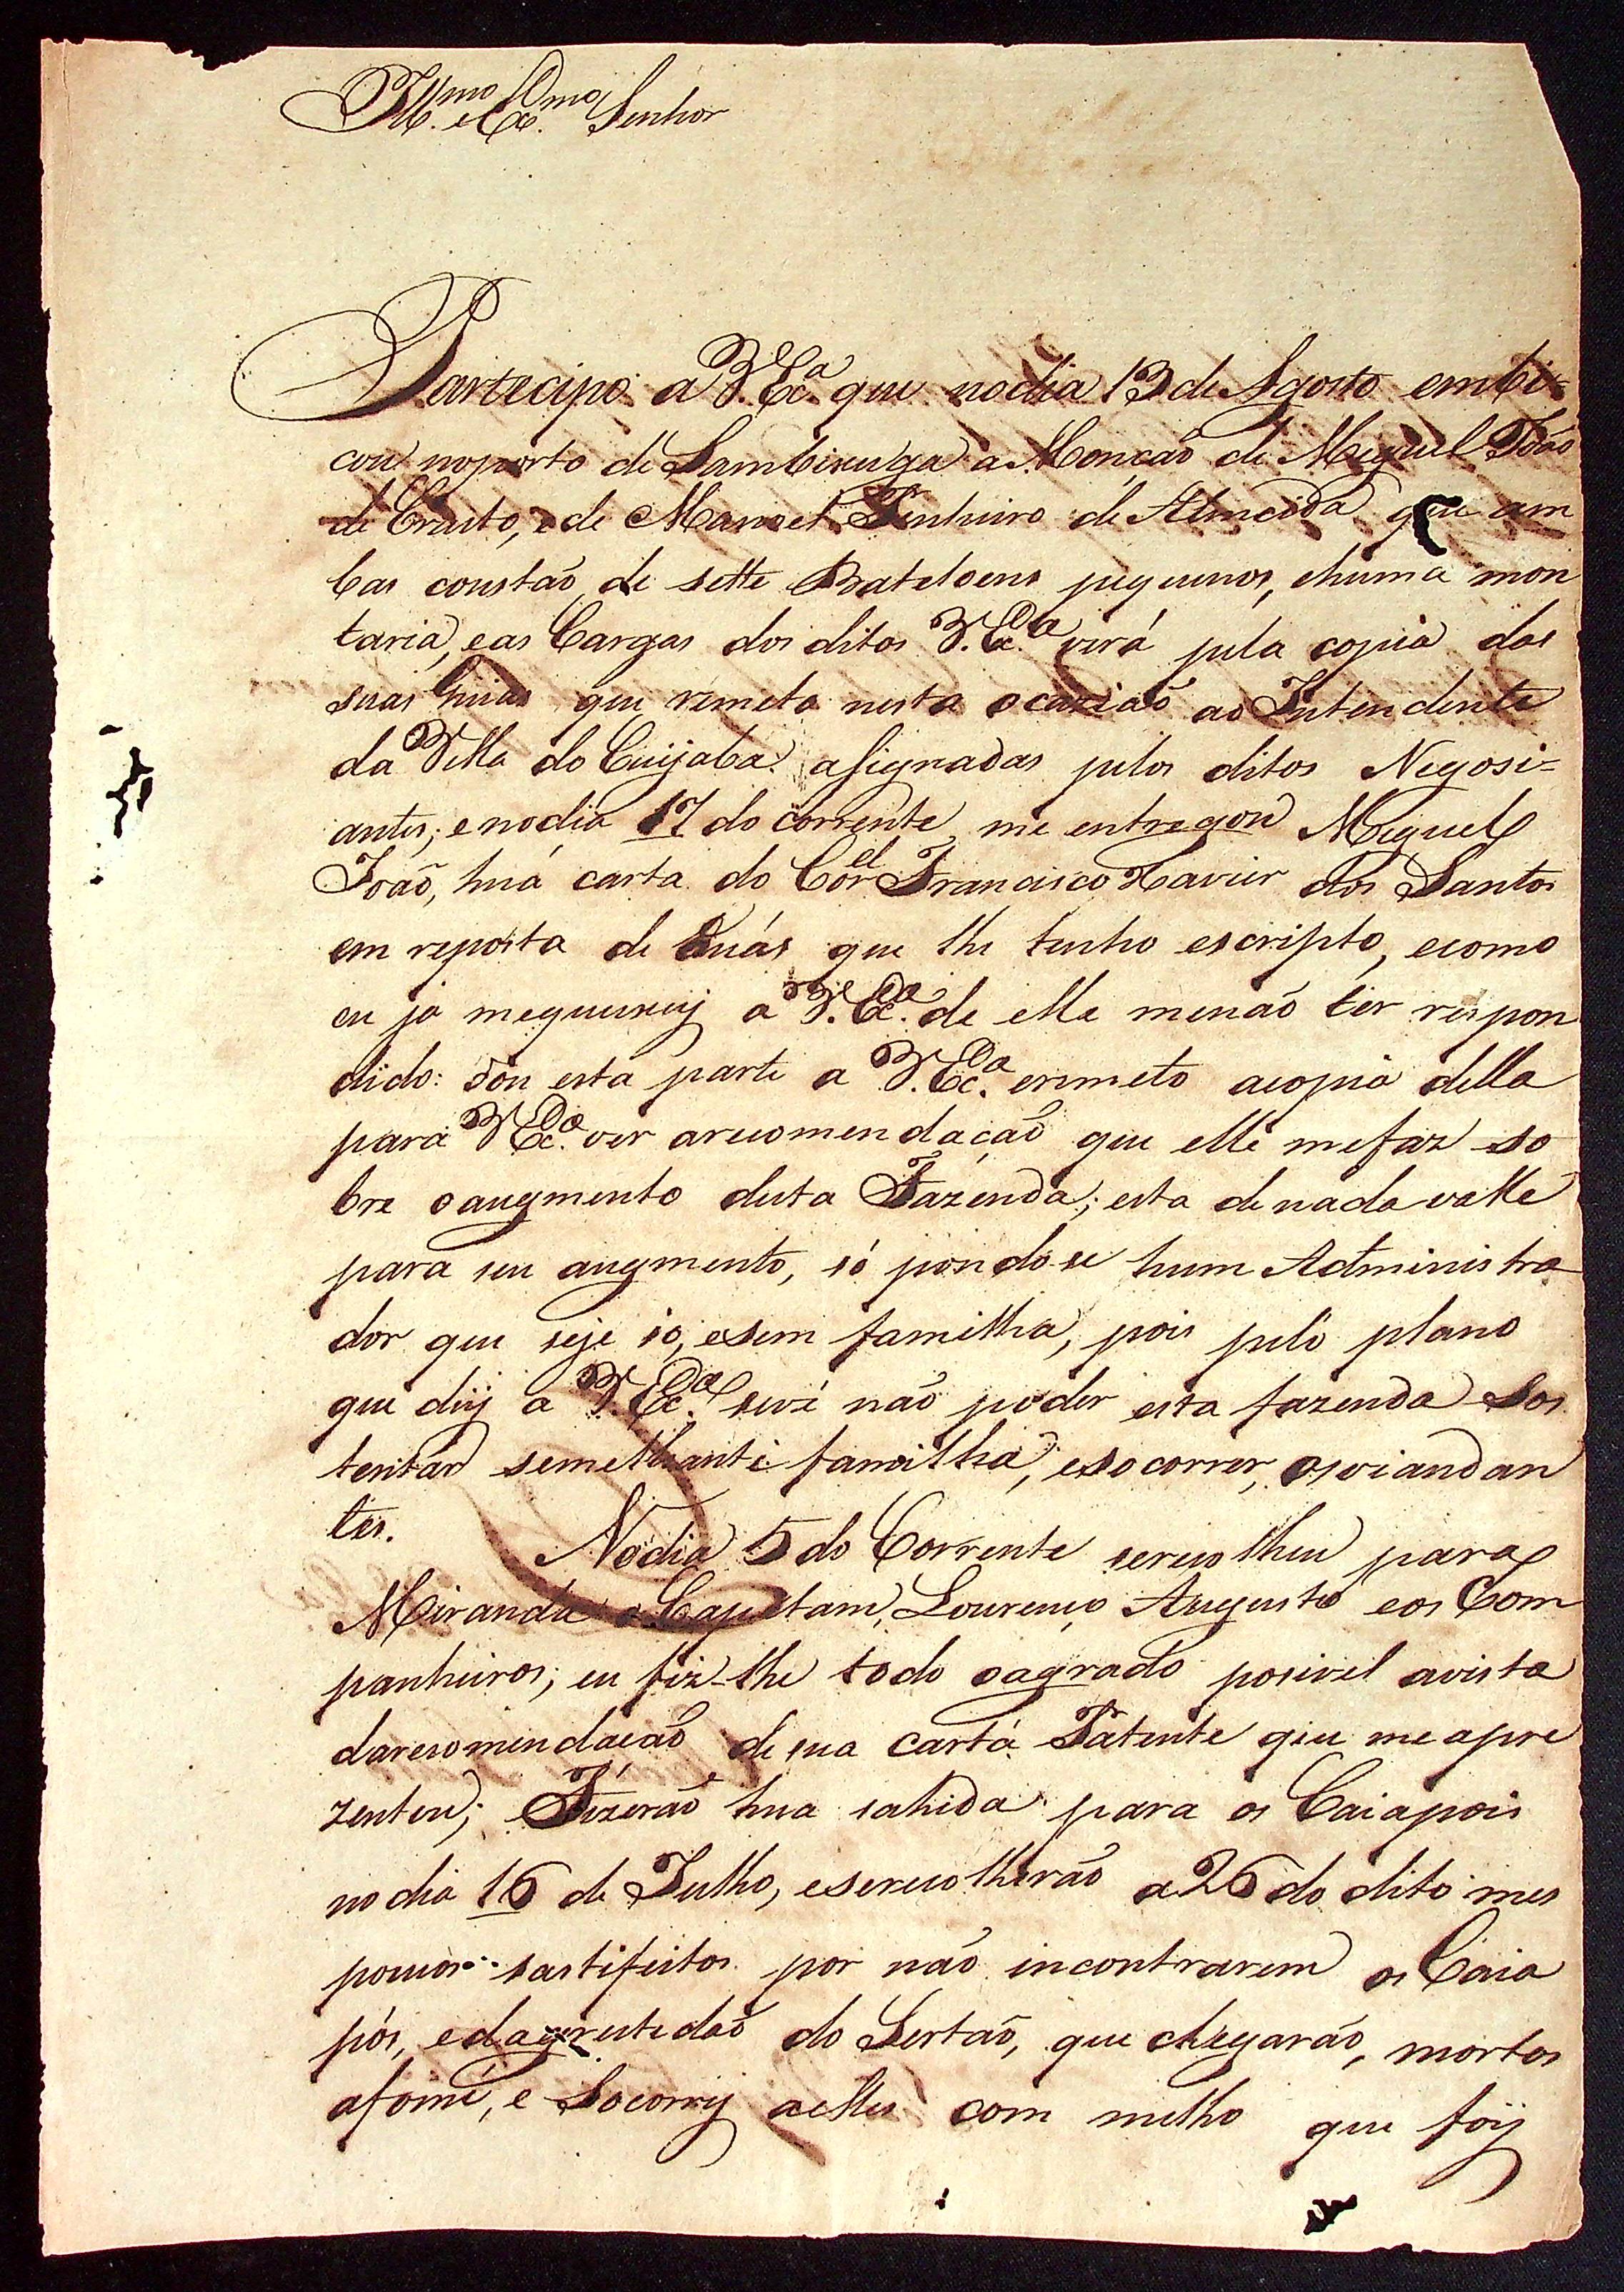 Ill.mo e Ex.mo Senhor
Partecipo a V. Ex.ca que nodia 13 de Agosto embi=
cou noporto de Sambixuga a Monçaõ de Miguel Joaõ
de Cristo, e de Manoel Pinheiro de Almeida que am
bas constaõ de sette Bateloens pequenos, ehuma mon
taria, eas Cargas dos ditos V. Ex.ca verá pela copia das
suas Guias que remeto nesta ocaziaõ ao Intendente
da Villa do Cuijaba asignadas pelos ditos Negosi=
antes; enodia 17 do corrente me entregou Miguel
Joaõ, huá carta do Cor.el Francisco Xavier dos Santos
em reposta de duás que lhe tenho escripto, ecomo
eu ja mequeixej a V. Ex.ca de elle menaõ ter respon
dido: dou esta parte a V. Ex.ca eremeto acopia della
para V. Ex.ca ver arecomendaçaõ que elle mefaz so
bre oaugmento desta Fazenda; esta denada valle
para seu augmento, só pondo-se hum Administra
dor que seje só, esem familha, pois pelo plano
que dej a V. Ex.ca severá naõ poder esta fazenda Sos
tentar semelhante familha, esocorrer, osviandan
tes.
Nodia 5 do Corrente serecolheu para
Miranda o Capetam, Lourenço Augusto eos Com
panheiros; eu fiz-lhe todo oagrado posivel avista
darecomendaçaõ de sua carta Patente que me apre
zentou; Fizeraõ hua sahida para os Caiapois
no dia 16 de Julho, eserecolheraõ a 26 do dito mes
poucos sastifeitos por naõ incontrarem os Caia
pós, edagrestidaõ do Sertaõ, que chegaraõ, mortos
afome, e Socorrij aelles com milho que foij